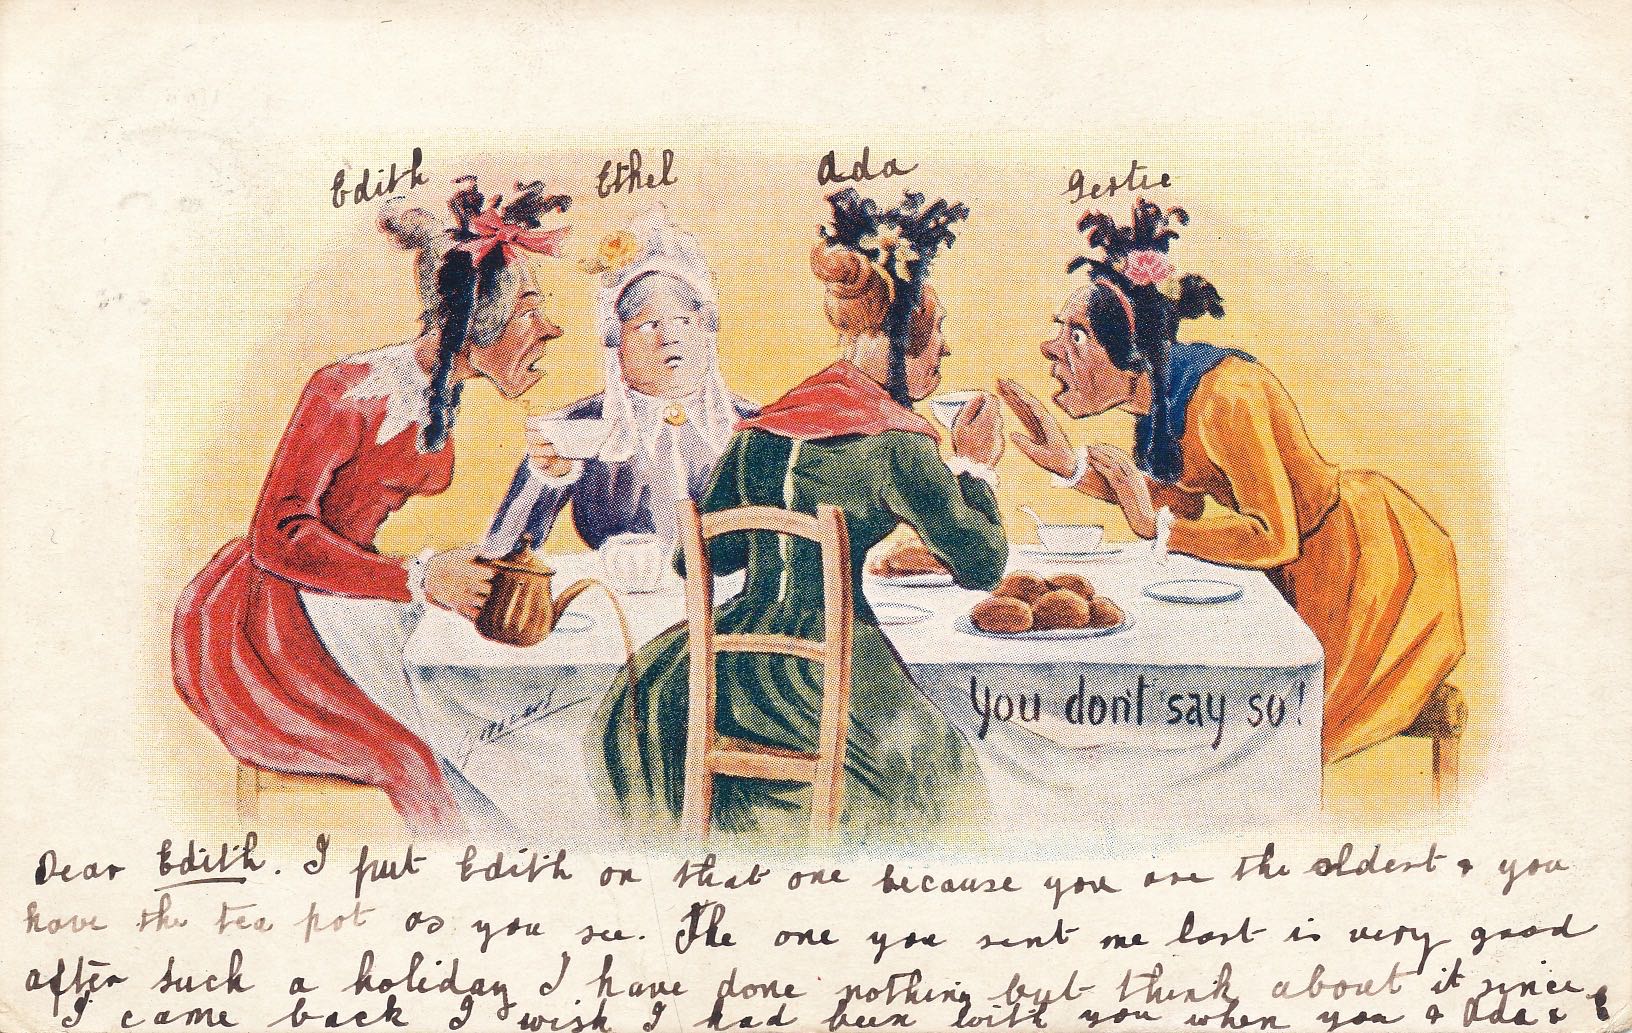 Edith Ethel Ada Gertie
You don't say so!
Dear Edith. I put Edith on that one because you are the oldest & you
have the tea pot as you see. The one you sent me last is very good
after such a holiday I have done nothing but think about it since
I came back I wish I had been with you when you & Ada &